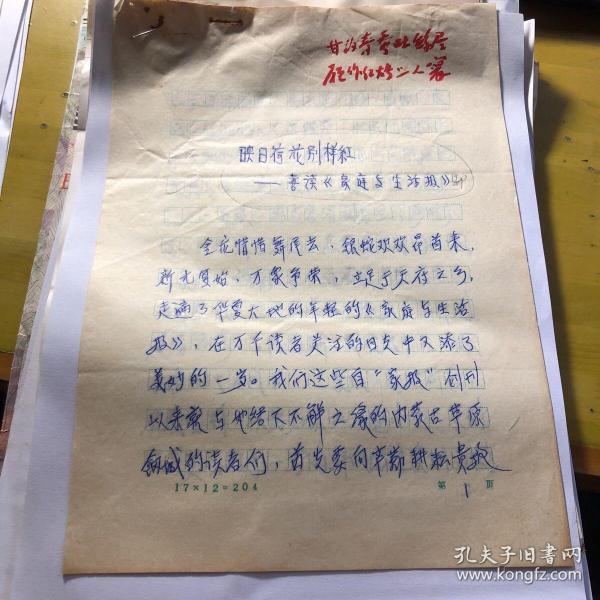 映日荷花别样红
——喜读《家庭与生活报》
金龙惜惜舞尾去,银蛇欢欢昂首来,
新元复始,万象争荣,立足于天府之乡,
走遍了华夏大地的年轻的《家庭与生活
报》,在万千读者关注的目光中又添了
美妙的一岁。我们这些自“家报”创刊
以来就与她结下不解之缘的内蒙古草原
钢城的读者们,首先要向辛勤耕耘贵报
17×12=204
第 1 页
孔夫子旧书网
www.kongfz.com